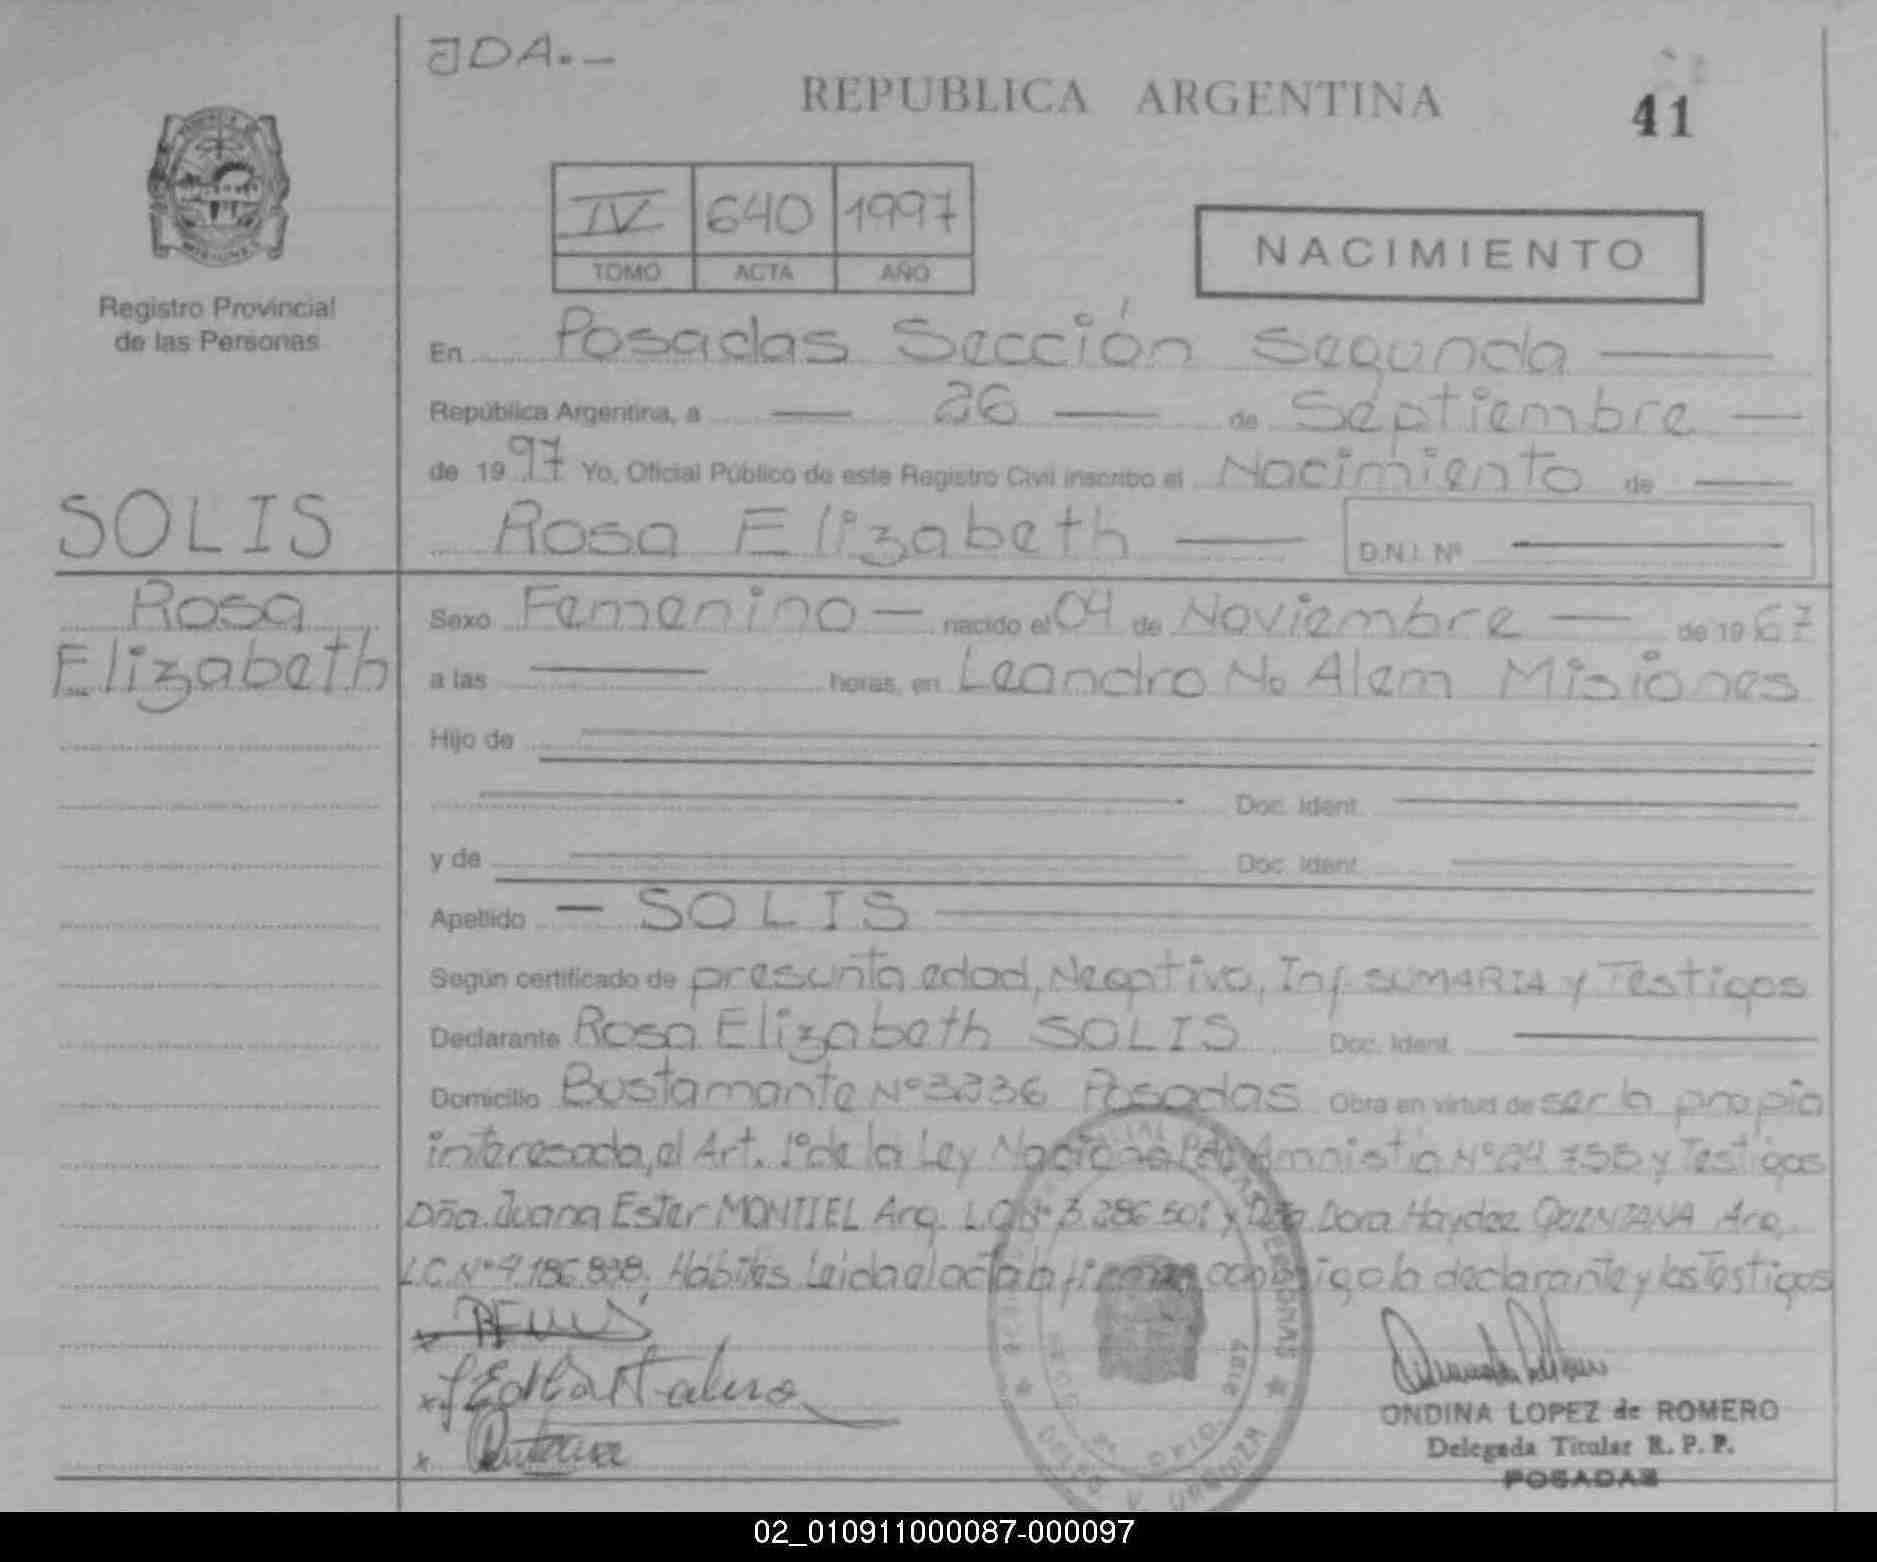 JDA.-
REPUBLICA ARGENTINA
41
IV 640 1997
TOMO ACTA AÑO
NACIMIENTO
Registro Provincial
de las Personas
En Posadas Sección Segunda
República Argentina, a 26 de Septiembre
de 1997 Yo, Oficial Público de este Registro Civil inscribo el Nacimiento de
SOLIS
Rosa Elizabeth D.N.I. Nº
Rosa
Elizabeth
Sexo Femenino nacido el 04 de Noviembre de 1967
a las horas, en Leandro N. Alem Misiones
Hijo de
Doc. Ident.
y de Doc. Ident.
Apellido - SOLIS
Según certificado de presunta edad, Negativo, Inf. SUMARIA y Testigos
Declarante Rosa Elizabeth SOLIS Doc. Ident.
Domicilio Bustamante Nº 3236 Posadas Obra en virtud de ser la propia
interesada, el Art. 1º de la Ley Nacional de Amnistia Nº 24 755 y Testigos
Dña. Juana Ester MONTIEL Arg. L.C Nº 3.286.501 y Dña. Dora Haydee QUINTANA Arg.
L.C. Nº 4.186.838. Hábiles Leida el acta la firman conmigo la declarante y los Testigos
ONDINA LOPEZ de ROMERO
Delegada Titular R. P. P.
POSADAS
02_010911000087-000097